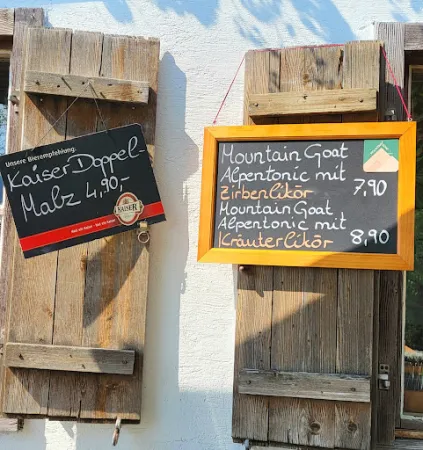 Unsere Bierempfehlung:
Kaiser Doppel-
Malz 4,90,-
KAISER
Mountain Goat
Alpentonic mit
Zirbenlikör 7,90
Mountain Goat
Alpentonic mit
Kräuterlikör 8,90